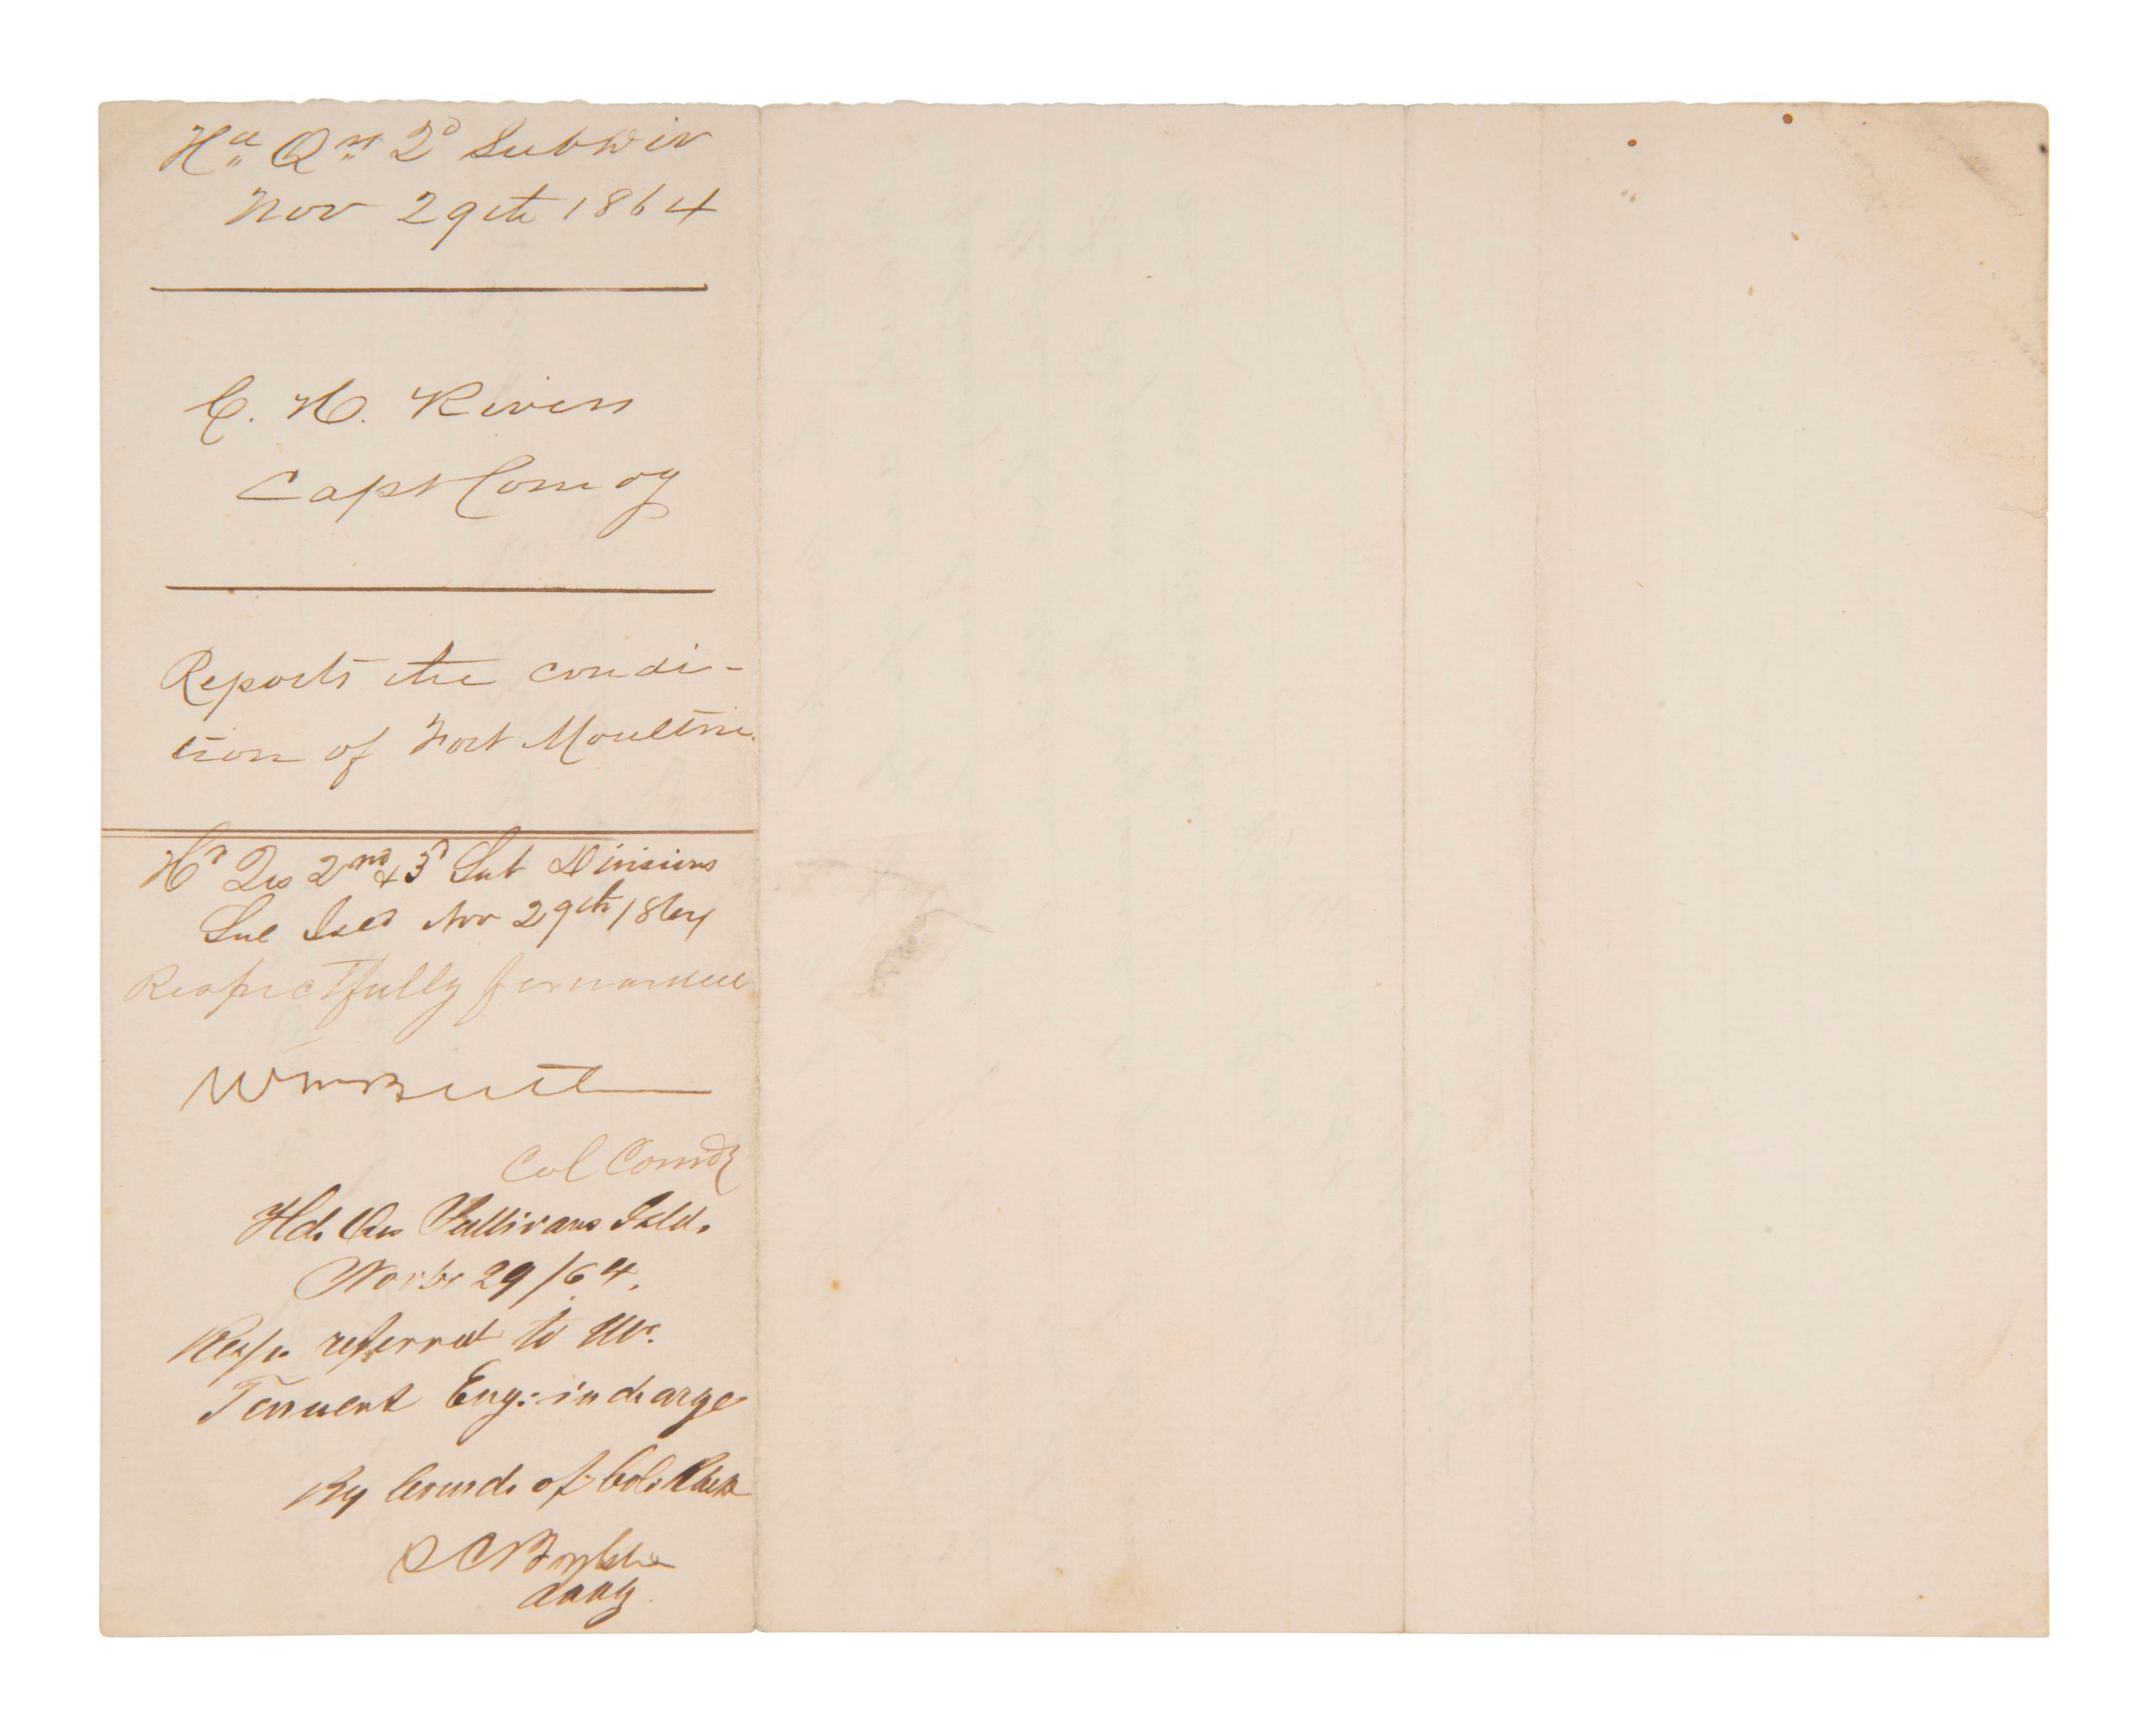 Hd Qrs 2d Sub Div
Nov 29th 1864
C. H. Rivers
Capt Comdg
Reports the condi-
tion of Fort Moultrie.
Hd Qrs 2nd & 3d Sub Divisions
Sul Isld Nov 29th 1864
Respectfully forwarded
Wm Butler
Col Comdg
Hd. Qrs Sullivans Isld.
Novbr 29/64.
Resp. referred to Mr.
Tennent Eng: in charge
By Comd. of Col.
AAAG